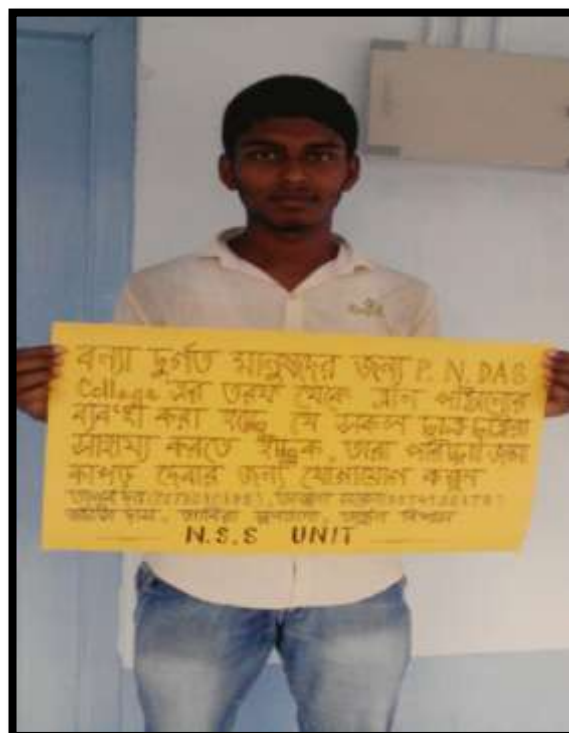 বন্যা দুর্গত মানুষদের জন্য P. N. DAS
College এর তরফ থেকে ত্রান পাঠানোর
ব্যবস্থা করা হচ্ছে, যে সকল ছাত্র ছাত্রীরা
সাহায্য করতে ইচ্ছুক, তারা পরিষ্কার জামা
কাপড় দেবার জন্য যোগাযোগ করুন
N.S.S UNIT